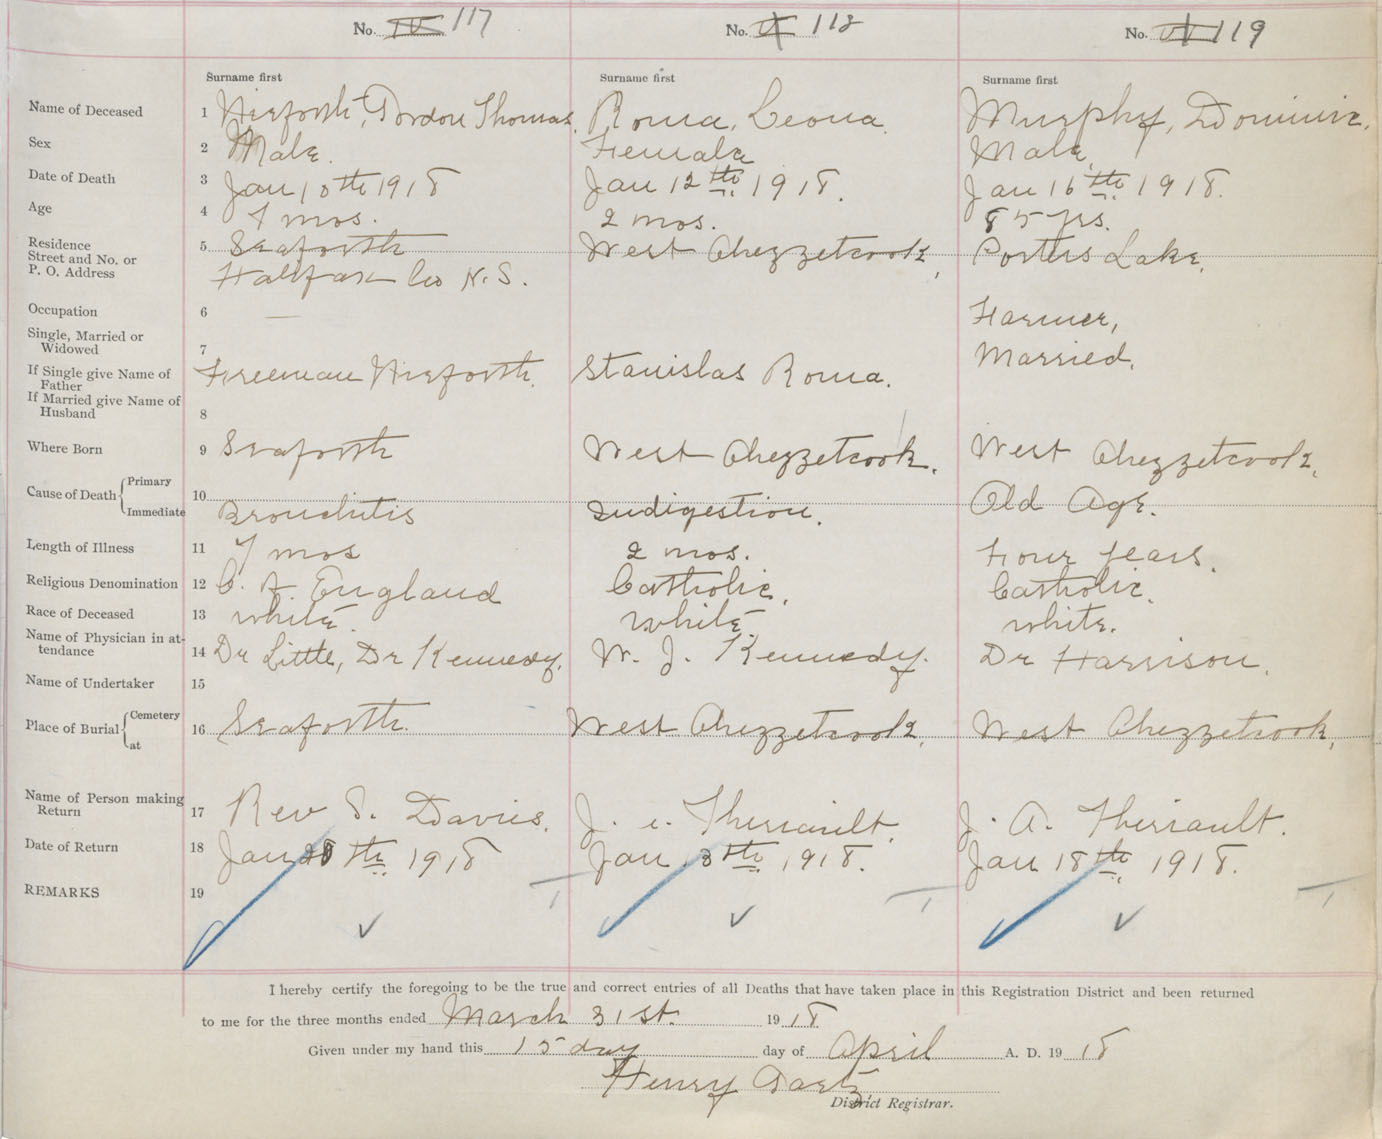 No. 117 No. 118 No. 119
Surname first Surname first Surname first
Name of Deceased 1 Nieforth, Gordon Thomas. Roma, Leona. Murphy, Dominic.
Sex 2 Male. Female Male,
Date of Death 3 Jan 10th 1918 Jan 12th 1918. Jan 16th 1918.
Age 4 7 mos. 2 mos. 85 yrs.
Residence 5 Seaforth West Chezzetcook, Porters Lake.
Street and No. or
P. O. Address Halifax Co N.S.
Occupation 6 — Farmer,
Single, Married or
Widowed 7 Married.
If Single give Name of
Father Freeman Nieforth. Stanislas Roma.
If Married give Name of
Husband 8
Where Born 9 Seaforth West Chezzetcook. West Chezzetcook,
Cause of Death Primary 10 Old Age.
Immediate Bronchitis Indigestion.
Length of Illness 11 7 mos 2 mos. Four years.
Religious Denomination 12 C. of England Catholic. Catholic.
Race of Deceased 13 white. white white.
Name of Physician in at-
tendance 14 Dr Little, Dr Kennedy. W. J. Kennedy. Dr Harrison.
Name of Undertaker 15
Place of Burial Cemetery
at 16 Seaforth. West Chezzetcook, West Chezzetcook,
Name of Person making
Return 17 Rev S. Davies. J. Theriault. J. A. Theriault.
Date of Return 18 Jan 28th 1918 Jan 18th 1918. Jan 18th 1918.
REMARKS 19
I hereby certify the foregoing to be the true and correct entries of all Deaths that have taken place in this Registration District and been returned
to me for the three months ended March 31st. 1918
Given under my hand this 15 day day of April A. D. 1918
Henry
District Registrar.